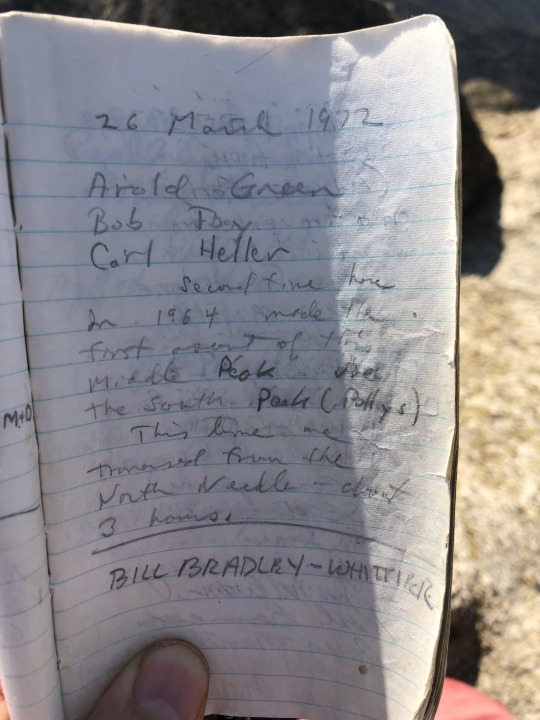 26 March 1972
Arold Green
Bob
Carl Heller
second time here
In 1964 made the
first ascent of this
Middle Peak via
the South Peak (Pollys)
This time we
traversed from the
North Needle - about
3 hours.
BILL BRADLEY - WHITTIER
M+D